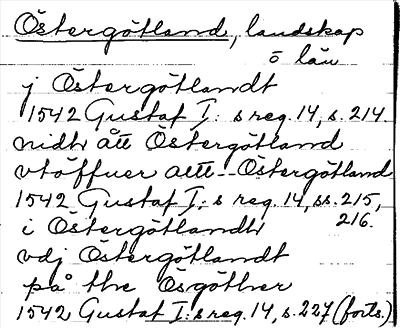 Östergötland, landskap
o län
j Östergötlandt
1542 Gustaf I: s reg. 14, s. 214.
nidh ått Östergötland
vtöffuer alltt -- Östergötland
1542 Gustaf I: s reg. 14, ss. 215,
216.
i Östergötlandh
vdj Östergötlandt
på the Ösgöther
1542 Gustaf I: s reg. 14, s. 227 (forts.)